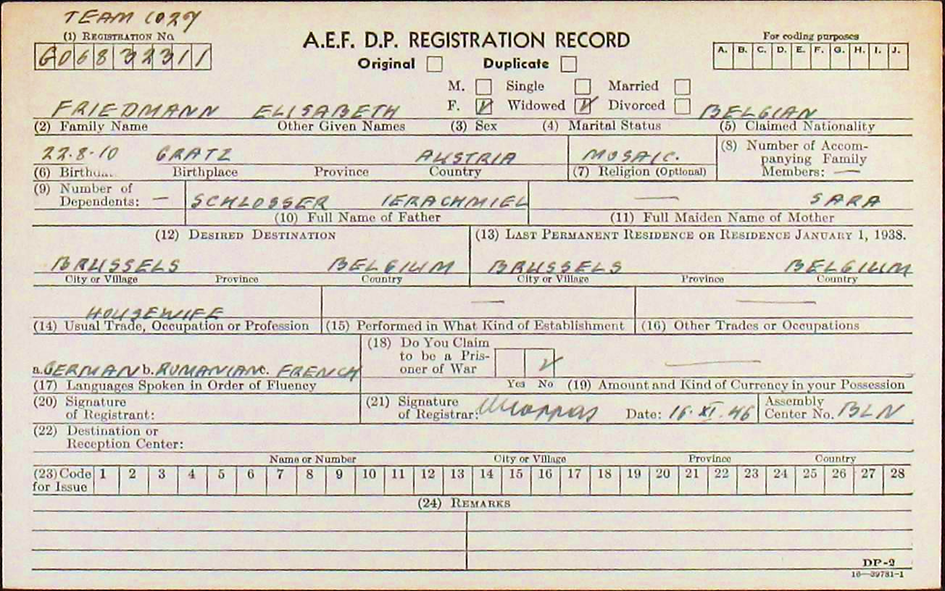 TEAM 1027
(1) REGISTRATION No.
G06832311
A.E.F. D.P. REGISTRATION RECORD
Original Duplicate
For coding purposes
A. B. C. D. E. F. G. H. I. J.
M. Single Married
F. V Widowed V Divorced
FRIEDMANN ELISABETH BELGIAN
(2) Family Name Other Given Names (3) Sex (4) Marital Status (5) Claimed Nationality
22-8-10 GRATZ AUSTRIA MOSAIC.
(6) Birthdate Birthplace Province Country (7) Religion (Optional)
(8) Number of Accompanying Family Members: —
(9) Number of Dependents: —
SCHLOSSER IERACHMIEL — SARA
(10) Full Name of Father (11) Full Maiden Name of Mother
(12) DESIRED DESTINATION (13) LAST PERMANENT RESIDENCE OR RESIDENCE JANUARY 1, 1938.
BRUSSELS BELGIUM BRUSSELS BELGIUM
City or Village Province Country City or Village Province Country
HOUSEWIFE — —
(14) Usual Trade, Occupation or Profession (15) Performed in What Kind of Establishment (16) Other Trades or Occupations
a. GERMAN b. RUMANIAN c. FRENCH
(17) Languages Spoken in Order of Fluency
(18) Do You Claim to be a Prisoner of War
V
Yes No
—
(19) Amount and Kind of Currency in your Possession
(20) Signature of Registrant:
(21) Signature of Registrar: Date: 16.XI.46
Assembly Center No. BLN
(22) Destination or Reception Center:
Name or Number City or Village Province Country
(23) Code for Issue 1 2 3 4 5 6 7 8 9 10 11 12 13 14 15 16 17 18 19 20 21 22 23 24 25 26 27 28
(24) REMARKS
DP-2
16—39781-1